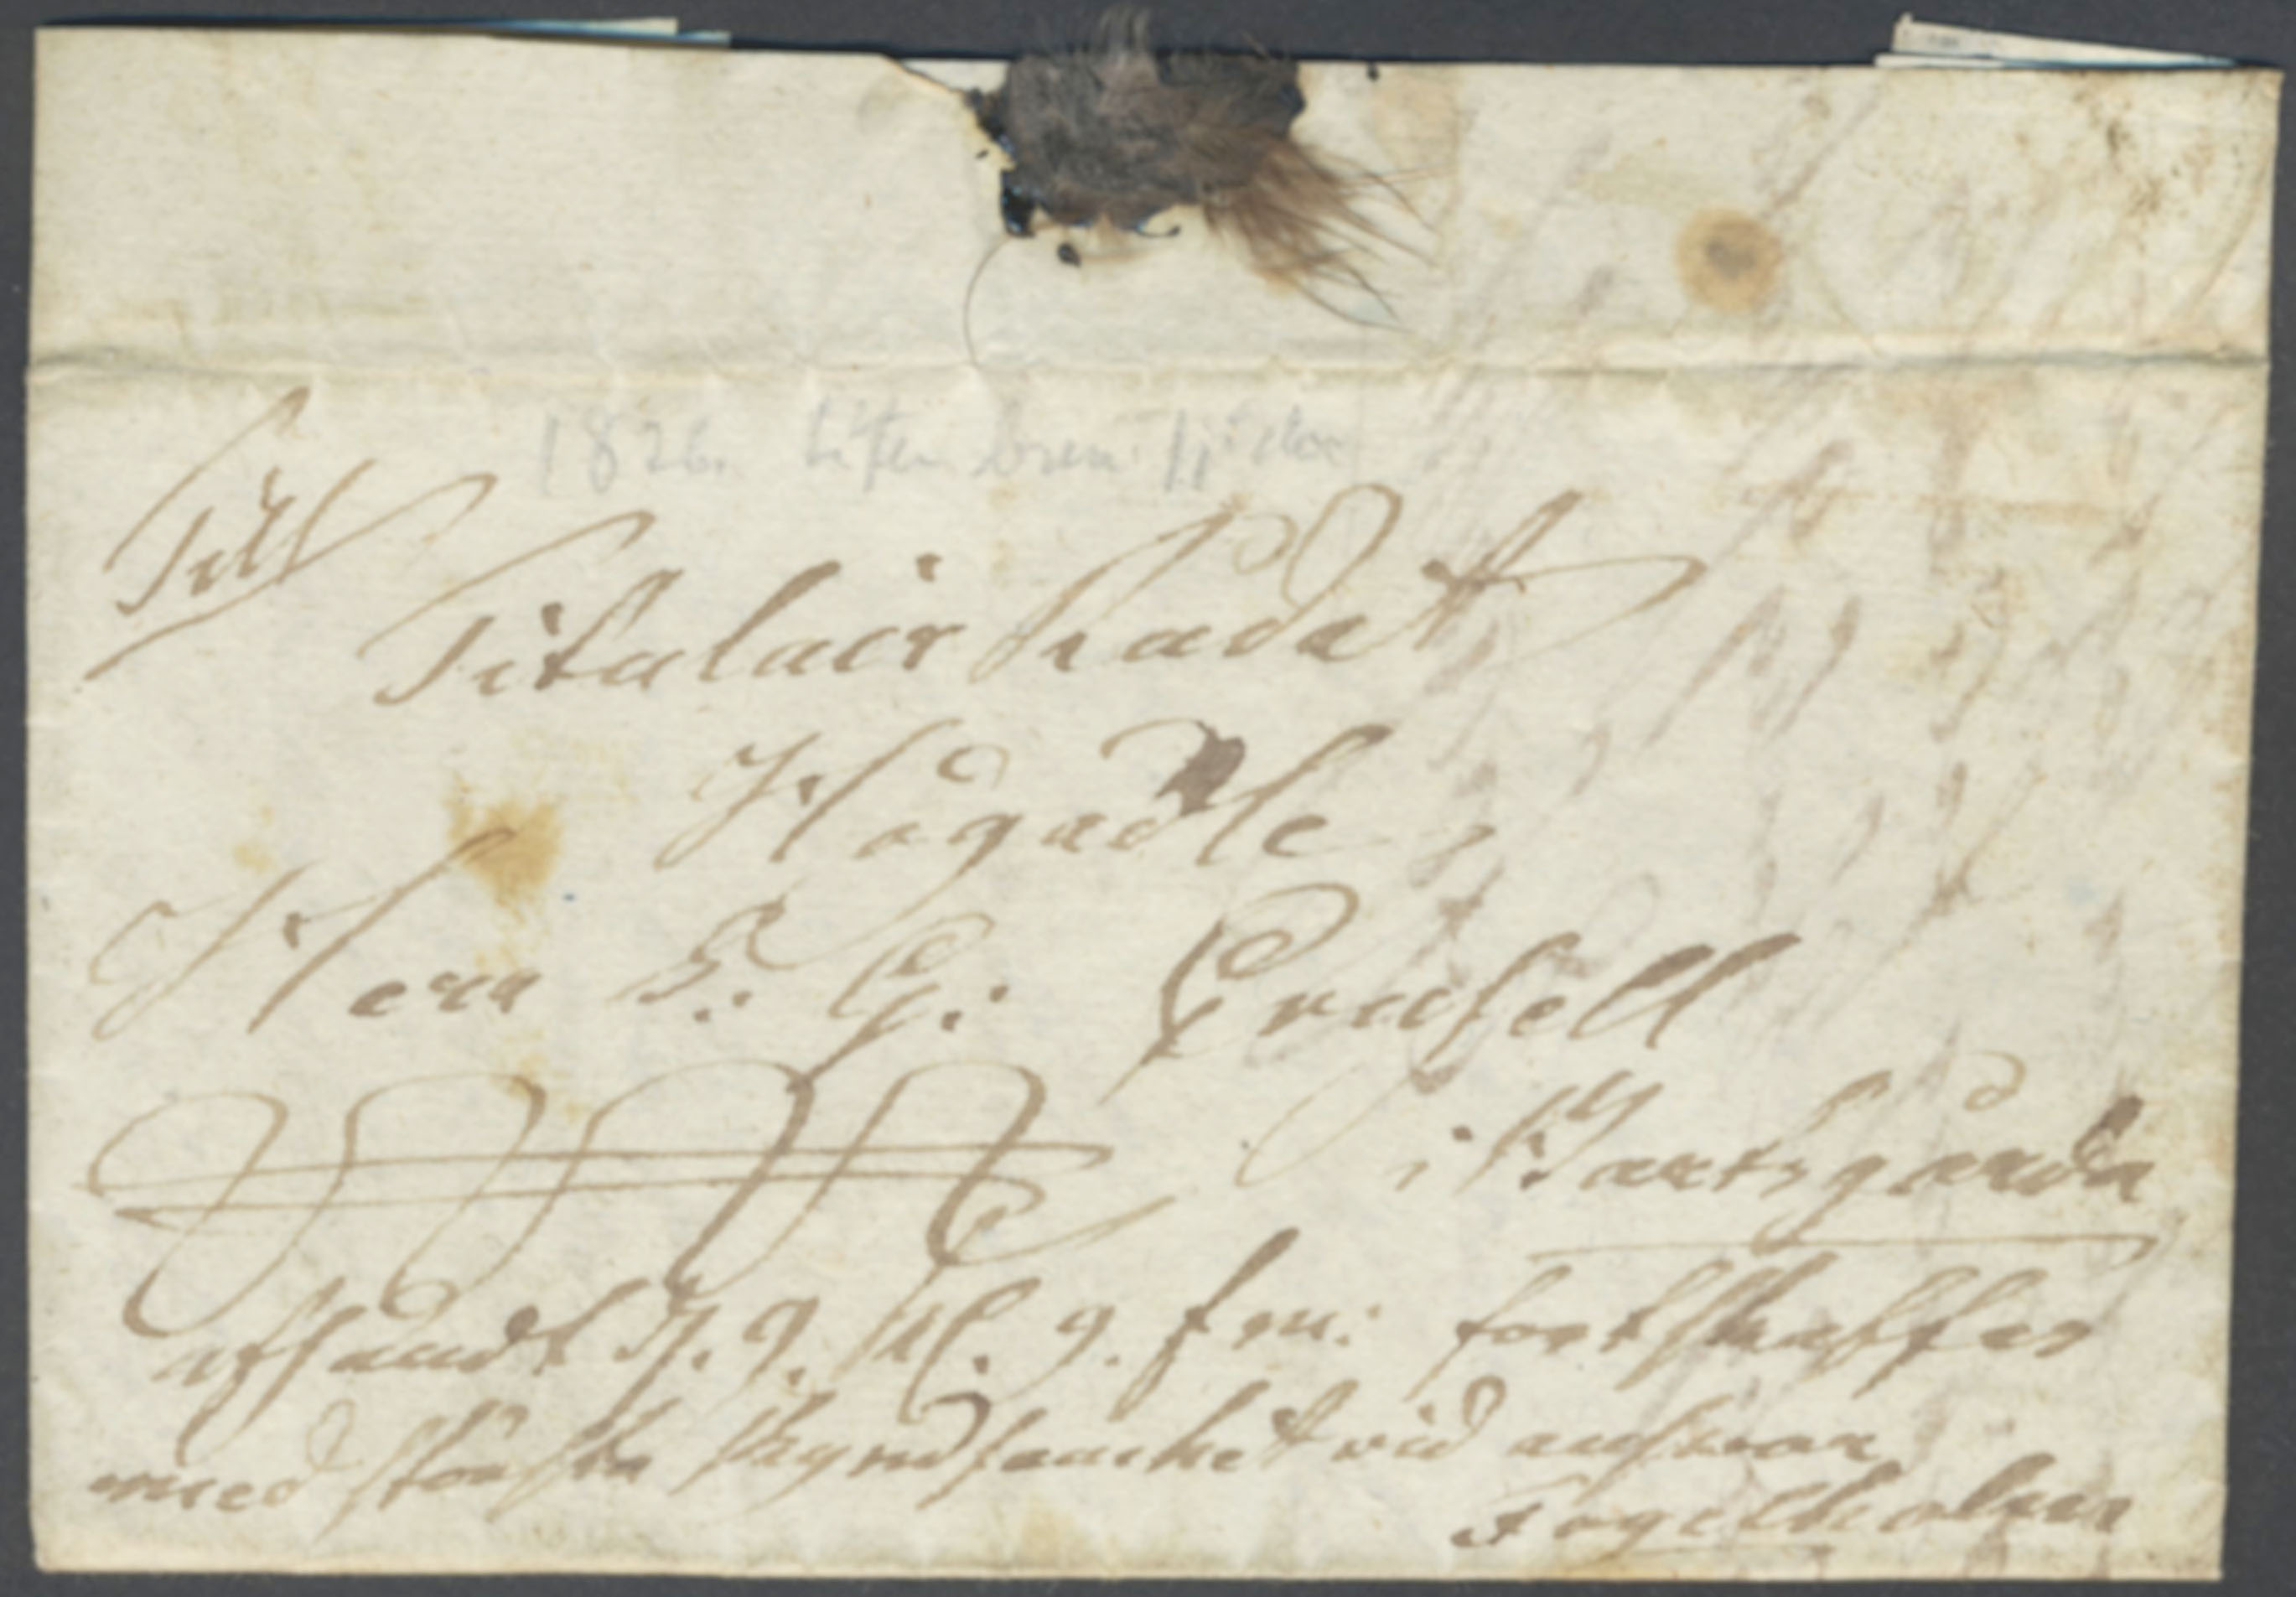 1826.
Till
Titulair Rådet
Högädle
Herr S. G. Crusell
i Bartsgårda
afsändt d. 9. Kl. 9. f m: fortskaffes
med största skyndsamhet vid answar
Fogelholm